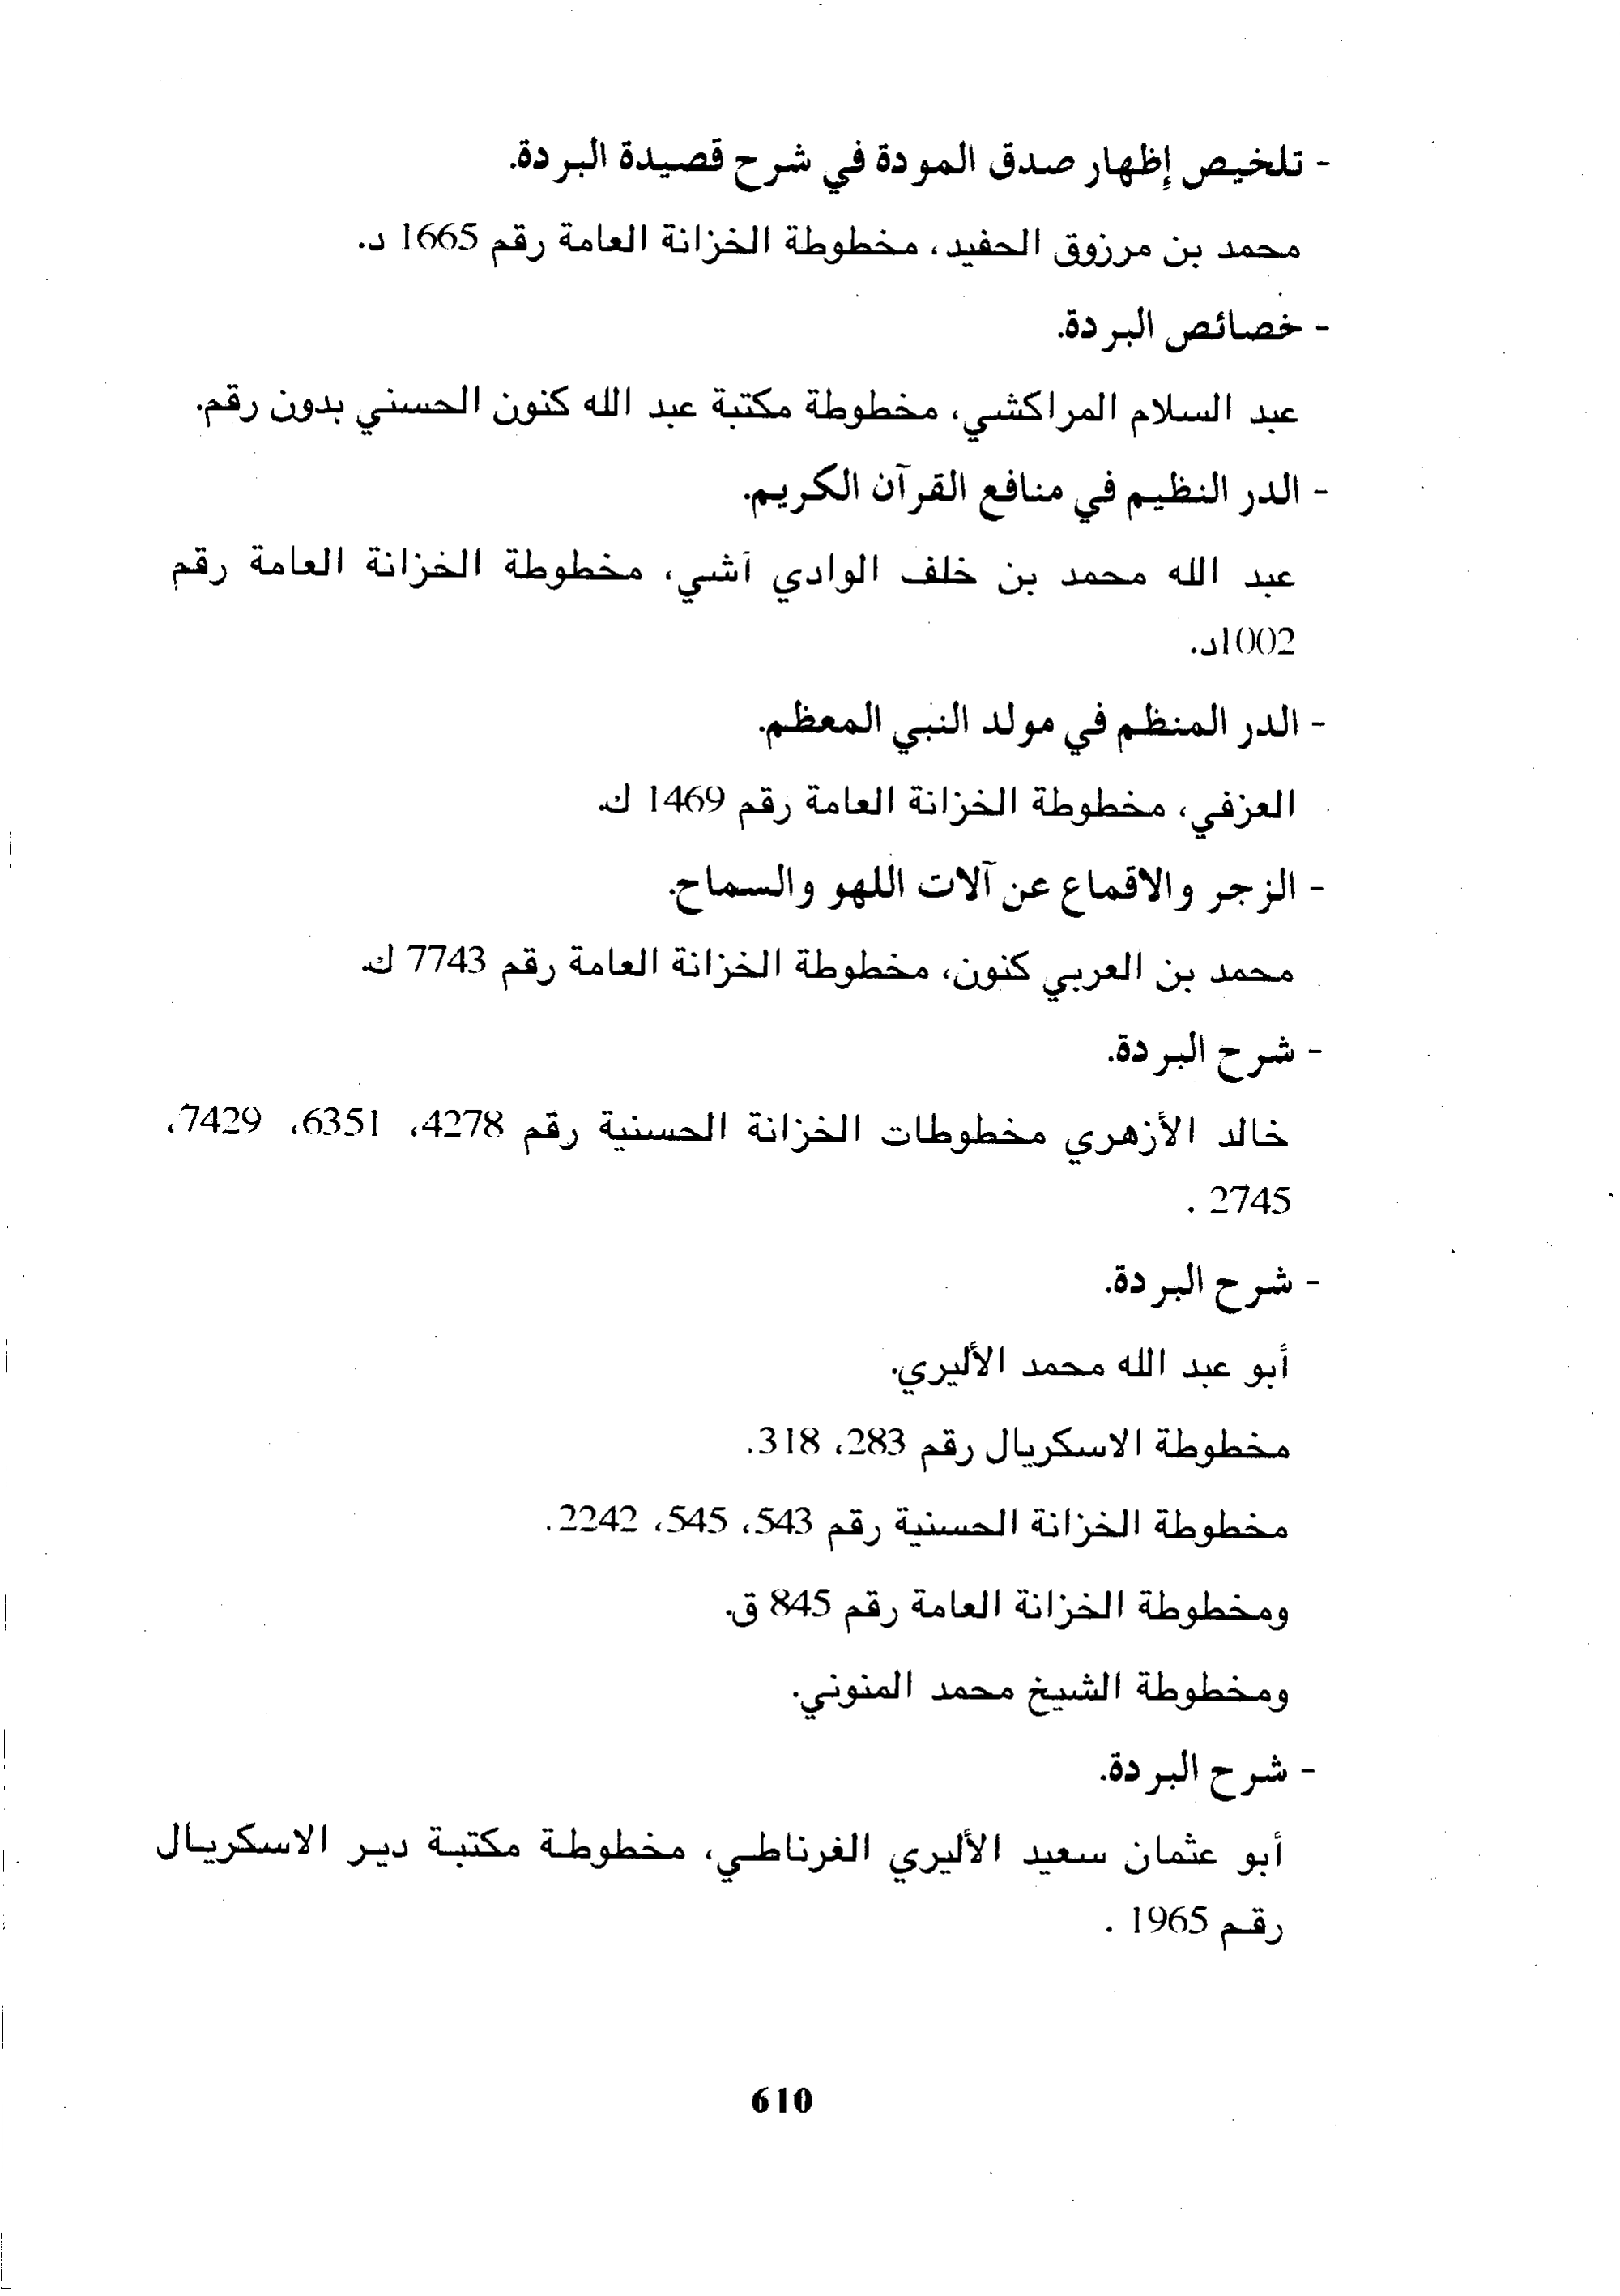 - تلخيص إظهار صدق المودة في شرح قصيدة البردة.
محمد بن مرزوق الحفيد، مخطوطة الخزانة العامة رقم 1665 د.
- خصائص البردة.
عبد السلام المراكشي، مخطوطة مكتبة عبد الله كنون الحسني بدون رقم.
- الدر النظيم في منافع القرآن الكريم.
عبد الله محمد بن خلف الوادي آشي، مخطوطة الخزانة العامة رقم
1002د.
- الدر المنظم في مولد النبي المعظم.
العزفي، مخطوطة الخزانة العامة رقم 1469 ك.
- الزجر والاقماع عن آلات اللهو والسماح.
محمد بن العربي كنون، مخطوطة الخزانة العامة رقم 7743 ك.
- شرح البردة.
خالد الأزهري مخطوطات الخزانة الحسنية رقم 4278، 6351، 7429،
2745 .
- شرح البردة.
أبو عبد الله محمد الأليري.
مخطوطة الاسكريال رقم 283، 318.
مخطوطة الخزانة الحسنية رقم 543، 545، 2242.
ومخطوطة الخزانة العامة رقم 845 ق.
ومخطوطة الشيخ محمد المنوني.
- شرح البردة.
أبو عثمان سعيد الأليري الغرناطي، مخطوطة مكتبة دير الاسكريال
رقم 1965 .
610